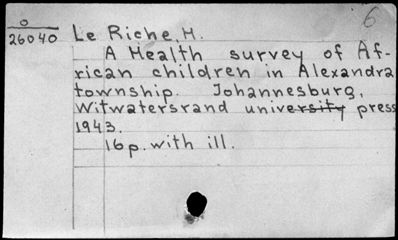 6
0
26040 Le Riche, H.
A Health survey of Af-
rican children in Alexandra
township. Johannesburg,
Witwatersrand university press
1943.
16p. with ill.